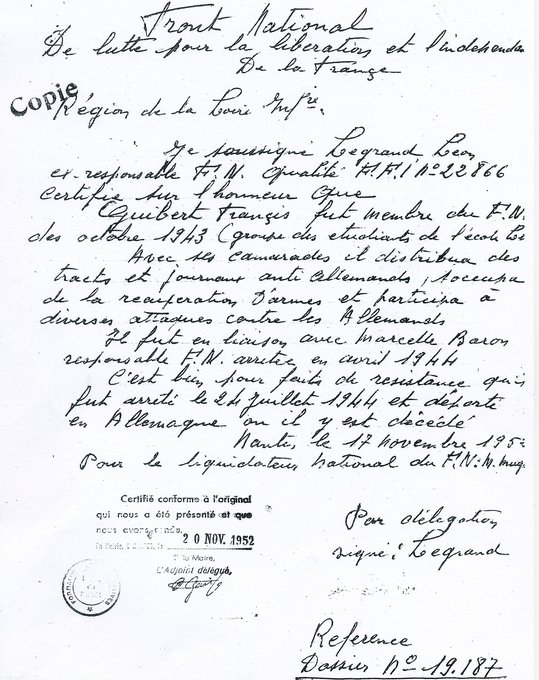 Front National
De lutte pour la liberation et l'independan
De la France
Copie
Région de la Loire Infre.
Je soussigné Legrand Leon
ex-responsable F.N. qualité F.F.I No 22866
certifie sur l'honneur que
Guibert Françis fut membre du F.N.
des octobre 1943 (groupe des etudiants de l'école Li
Avec ses camarades il distribua des
tracts et journaux anti allemands, soccupa
de la recuperation D'armes et participa à
diverses attaques contre les Allemands
Il fut en liaison avec Marcelle Baron
responsable F.N. arretée en avril 1944
C'est bien pour faits de resistance qu'i
fut arreté le 24 Juillet 1944 et déporté
en Allemagne ou il y est décédé
Nantes le 17 novembre 195
Pour le liquidateur National du F.N. M.
Certifié conforme à l'original
qui nous a été présenté et que
nous avons rendu.
20 NOV. 1952
Le Maire,
L'Adjoint délégué,
Par délégation
signé: Legrand
Reference
Dossier No 19.187